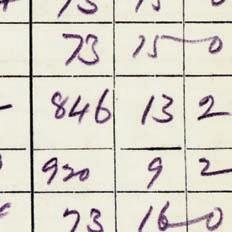 73 15 0
846 13 2
920 9 2
73 16 0